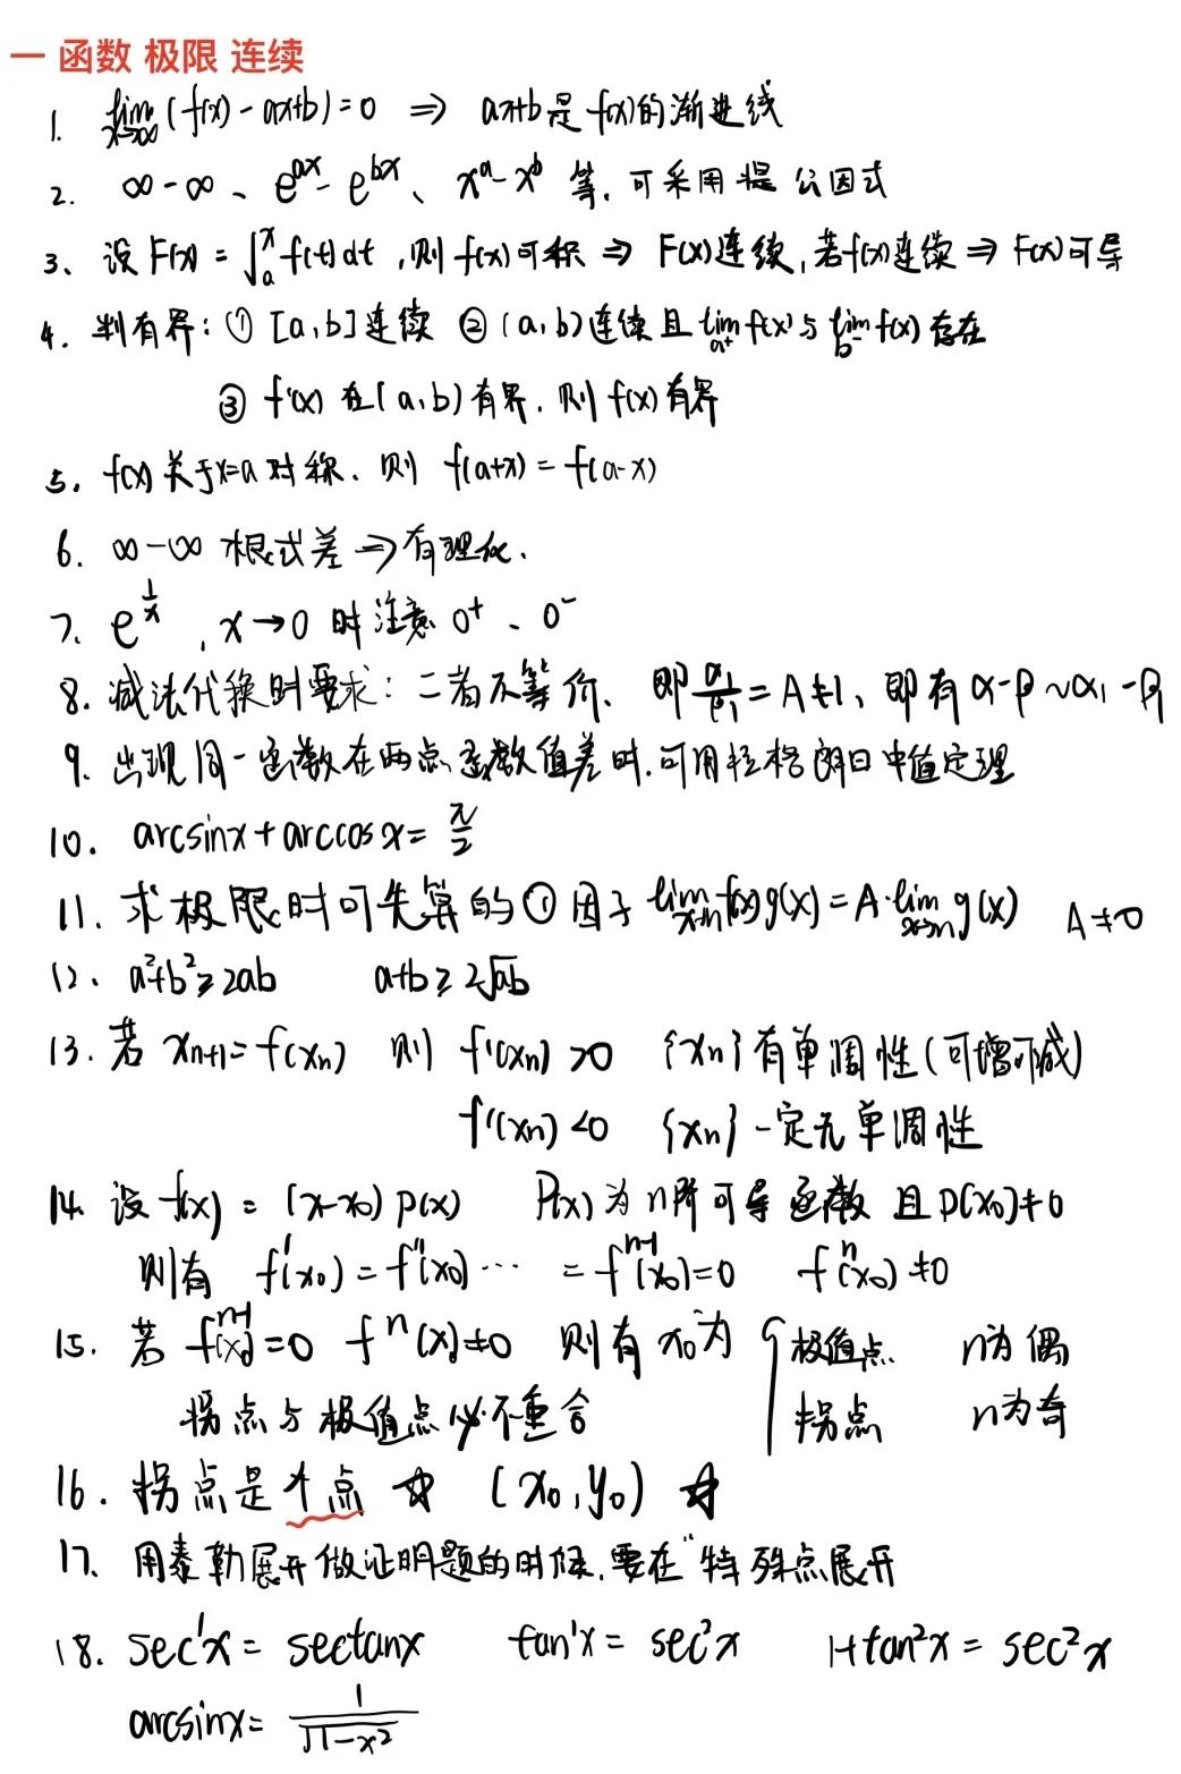 一 函数 极限 连续
1. lim x→∞ (f(x) - ax+b) = 0 ⇒ ax+b是f(x)的渐进线
2. ∞-∞、e^{ax}-e^{bx}、x^a-x^b 等, 可采用提公因式
3、设F(x) = ∫_a^x f(t)dt, 则f(x)可积 ⇒ F(x)连续, 若f(x)连续 ⇒ F(x)可导
4. 判有界: ① [a,b]连续 ② (a,b)连续且 lim a⁺ f(x)与 lim b⁻ f(x)存在
③ f'(x) 在(a,b)有界, 则f(x)有界
5. f(x)关于x=a对称, 则 f(a+x) = f(a-x)
6. ∞-∞ 根式差 ⇒ 有理化.
7. e^{1/x}, x→0 时注意 0⁺、0⁻
8. 减法代换时要求: 二者不等价、即 α₁/β₁ = A≠1、即有α-β~α₁-β₁
9. 出现同一函数在两点函数值差时, 可用拉格朗日中值定理
10. arcsinx+arccosx= π/2
11. 求极限时可先算的①因子 lim x→n f(x)g(x) = A·lim x→n g(x) A≠0
12、a²+b²≥2ab a+b≥2√ab
13. 若 x_{n+1}=f(x_n) 则 f'(x_n)>0 {x_n}有单调性(可增可减)
f'(x_n)<0 {x_n}一定无单调性
14. 设f(x) = (x-x₀)p(x) P(x)为n阶可导函数 且P(x₀)≠0
则有 f'(x₀) = f''(x₀) … = f^{n-1}(x₀)=0 f^n(x₀)≠0
15. 若 f^{n-1}(x₀)=0 f^n(x₀)≠0 则有x₀为 { 极值点 n为偶
拐点与极值点必不重合 拐点 n为奇
16. 拐点是个点 ☆ (x₀,y₀) ☆
17、用泰勒展开做证明题的时候, 要在"特殊点展开
18. sec'x= sectanx tan'x= sec²x 1+tan²x= sec²x
arcsinx= 1/√1-x²